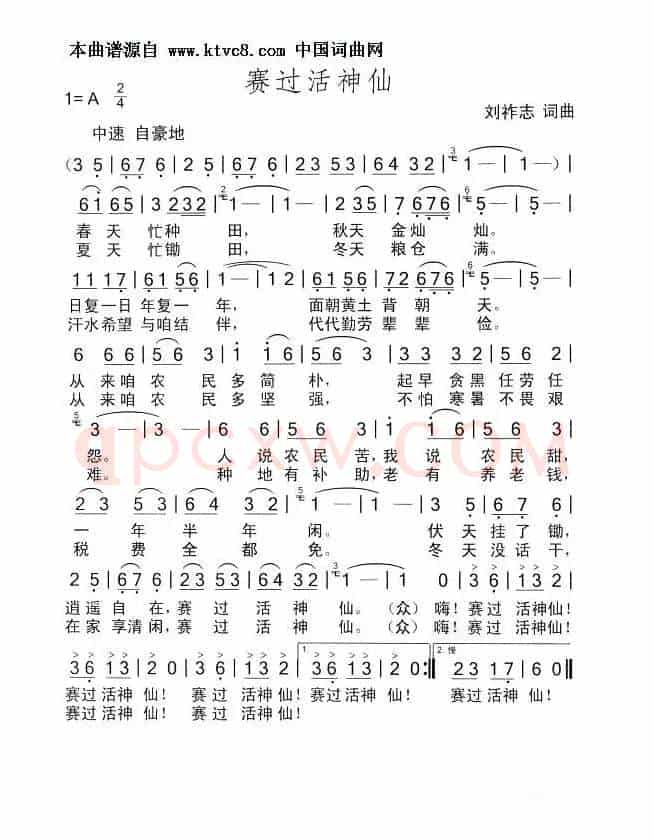 本曲谱源自 www.ktvc8.com 中国词曲网
赛过活神仙
1=A 2/4
刘祚志 词曲
中速 自豪地
(3 5|6 7 6|2 5|6 7 6|2 3 5 3|6 4 3 2|1—|1—)|
6 1 6 5|3 2 3 2|1—|1—|2 2 5|7 6 7 6|5—|5—|
春 天 忙种 田, 秋天 金灿 灿。
夏 天 忙锄 田, 冬天 粮仓 满。
1 1 1 7|6 1 5 6|1—|1 2|1 1 6 5|7 2 6 7 6|5—|5—|
日复一日 年复一 年, 面朝黄土 背 朝 天。
汗水希望 与咱结 伴, 代代勤劳 辈 辈 俭。
6 6 6|5 6 3|1 1 6|5 6|1 6 6|5 6 5 6|
从 来咱 农 民 多 简 朴, 起早 贪黑 任劳 任
从 来咱 农 民 多 坚 强, 不怕 寒暑 不畏 艰
3—|3— 6|5 6 5 3|1 1 6|5 6 5 3|
怨。 人 说 农民 苦,我 说 农民 甜,
难。 种 地有 补助,老 有 养老 钱,
2 3 5 3|6 4 3 2|3—|3— 5|6 7 6 5|
一 年 半 年 闲。 伏天 挂了 锄,
税 费 全 都 免。 冬天 没话 干,
2 5|6 7 6|2 3 5 3|6 4 3 2|1—|1 0|3 6|1 3 2|
逍遥 自 在,赛 过 活 神 仙。(众)嗨!赛过 活神仙!
在家 享清 闲,赛 过 活 神 仙。(众)嗨!赛过 活神仙!
3 6 1 3|2 0|3 6 1 3|2 0|1. 3 6 1 3|2 0:|2. 慢 2 3 1 7|6 0||
赛过 活神 仙! 赛过 活神仙!赛过 活神仙! 赛过 活神仙!
赛过 活神 仙! 赛过 活神仙!
qpcxw.com